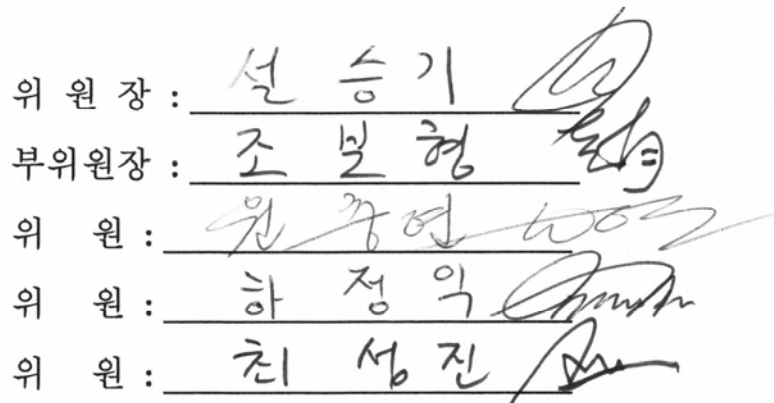 위 원 장 : 설 승 기
부위원장 : 조 보 형
위 원 : 원 충 연
위 원 : 하 정 익
위 원 : 최 성 진